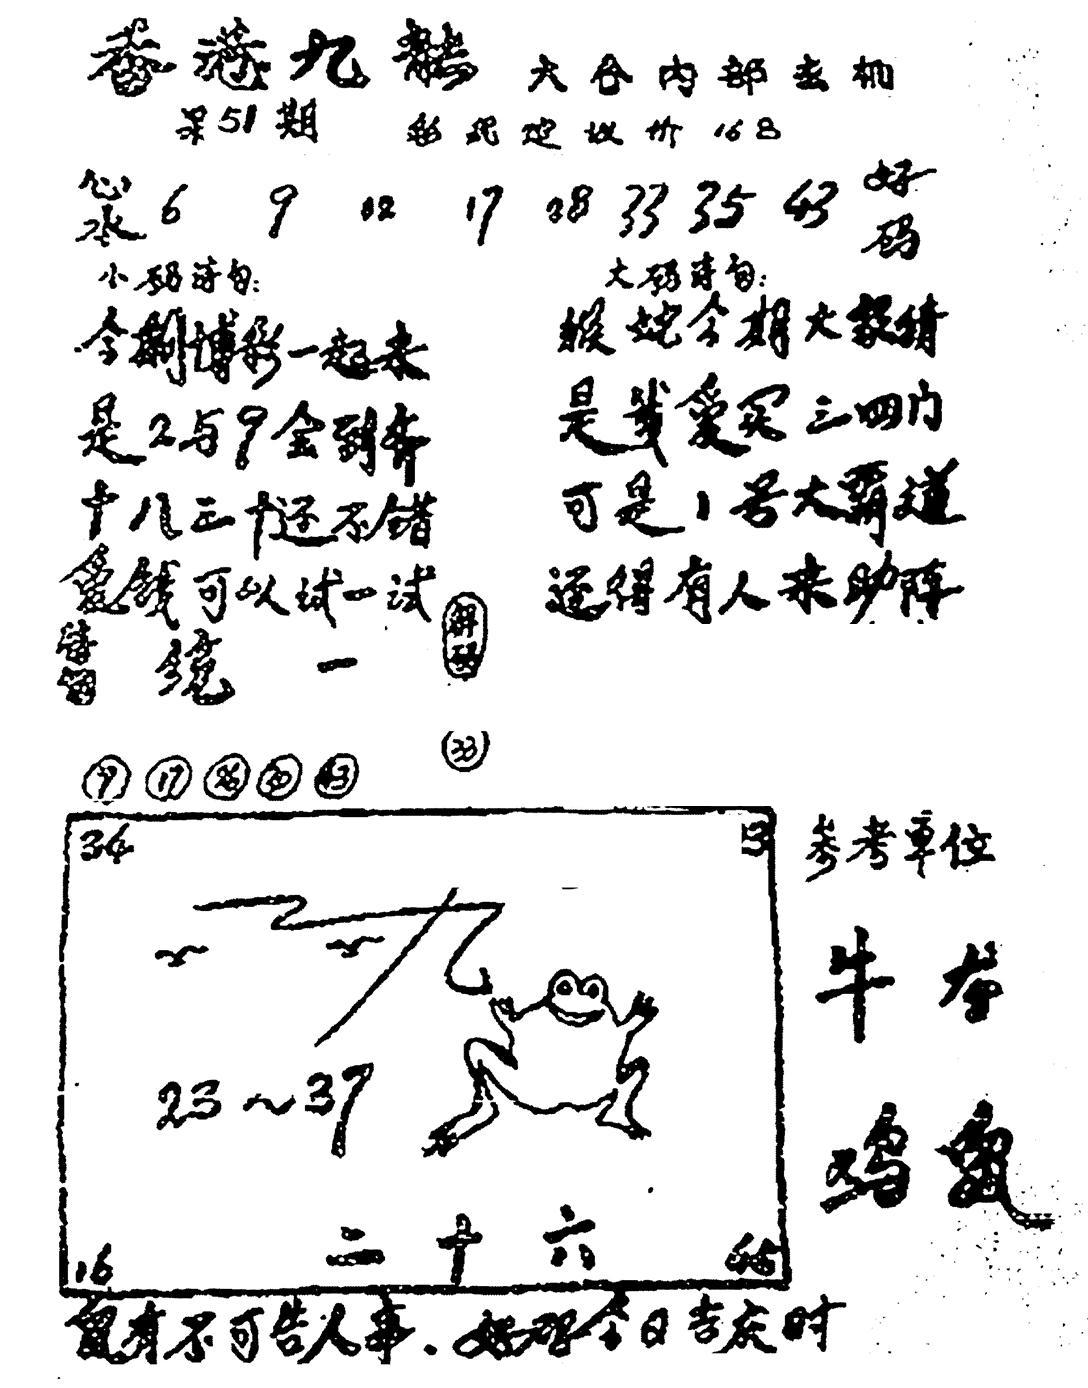 香港九龍 六合内部玄机
第51期 16日
心水 6 9 12 17 28 33 35 43 好码
小码诗句: 大码诗句:
今期博彩一起来 猴蛇今期大家猜
是2与9金到奔 是我爱买三四门
十八三十还不错 可是1号大霸道
爱钱可以试一试 还得有人来助阵
统一 解码
9 17 26 30 43 33
34 13 参考单位
牛 羊
23~37
鸡 鼠
二十六
16 45
鼠有不可告人事.好码今日吉庆时